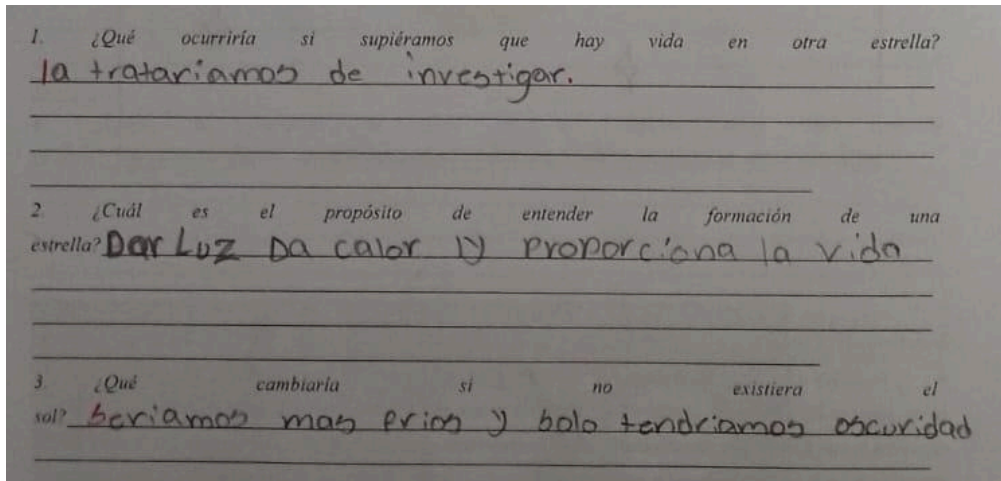 1. ¿Qué ocurriría si supiéramos que hay vida en otra estrella?
la trataríamos de investigar.
2. ¿Cuál es el propósito de entender la formación de una
estrella? Dar Luz Da calor y proporciona la vida
3. ¿Qué cambiaría si no existiera el
sol? seriamos mas frios y solo tendriamos oscuridad